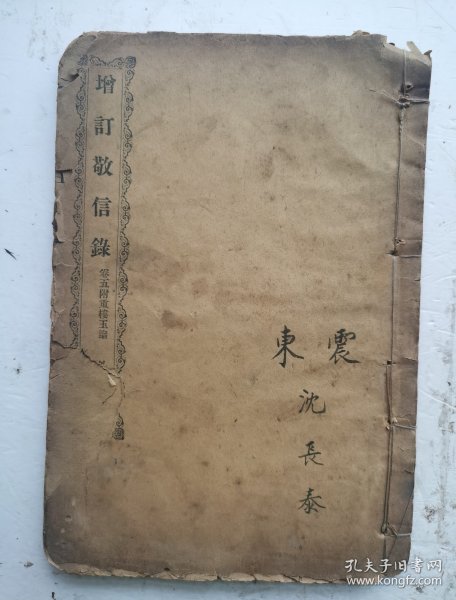 增訂敬信錄
卷五附重樓玉論
震東
沈長泰
孔夫子旧书网
www.kongfz.com